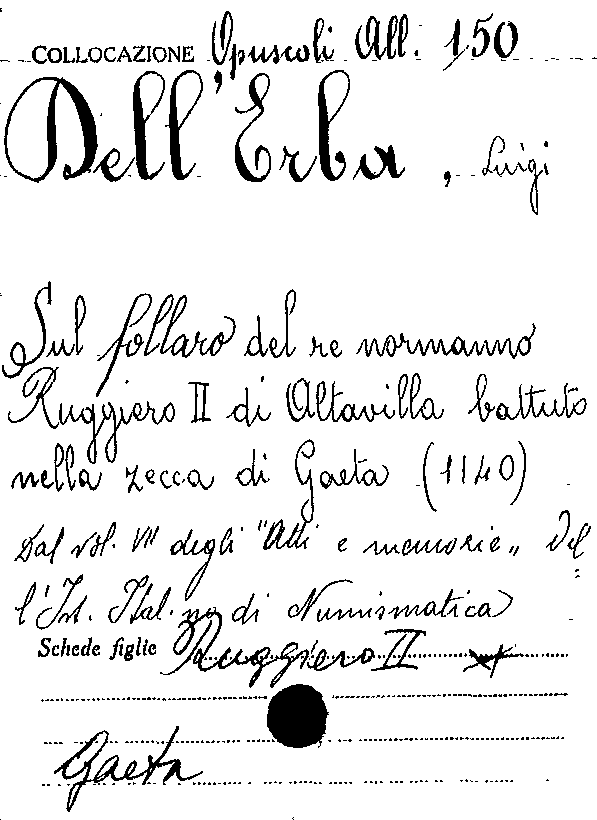 COLLOCAZIONE Opuscoli All. 150
Dell'Erba, Luigi
Sul follaro del re normanno
Ruggiero II di Altavilla battuto
nella zecca di Gaeta (1140)
Dal vol. VII degli "Atti e memorie" del
l'Ist. Ital.no di Numismatica
Schede figlie Ruggiero II
Gaeta